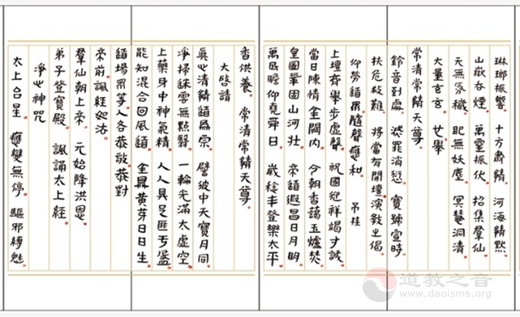 琳瑯振響 十方肅靖 河海靖默
山嶽吞煙 萬靈振伏 招集群仙
天無氛穢 地無妖塵 冥慧洞清
大量玄玄 廿舉
常清常靖天尊
鈴音到處 滅罪消愆 寶號宣時
扶危救難 將當有開壇演教之偈
仰勞道眾隨聲應和 吊挂
上壇齊舉步虛聲 祝國迎祥竭寸誠
當日陳情金闕內 今朝香靄玉爐焚
皇圖鞏固山河壯 帝道遐昌日月明
萬民瞻仰堯舜日 歲稔丰登樂太平
香供養 常清常靖天尊
大啓請
真心清靖道爲宗 譬彼中天寶月同
淨掃迷雲無點翳 一輪光滿太虛空
上藥身中神氣精 人人具足匪虧盈
能知混合回風道 金鼎黃芽日日生
道場眾等 人各恭敬恭對
帝前諷經如法
群仙朝上帝 元始降洪恩
弟子登寶殿 諷誦太上經
淨心神咒
太上台星 應變無停 驅邪縛魅
道教之音
www.daoisms.org